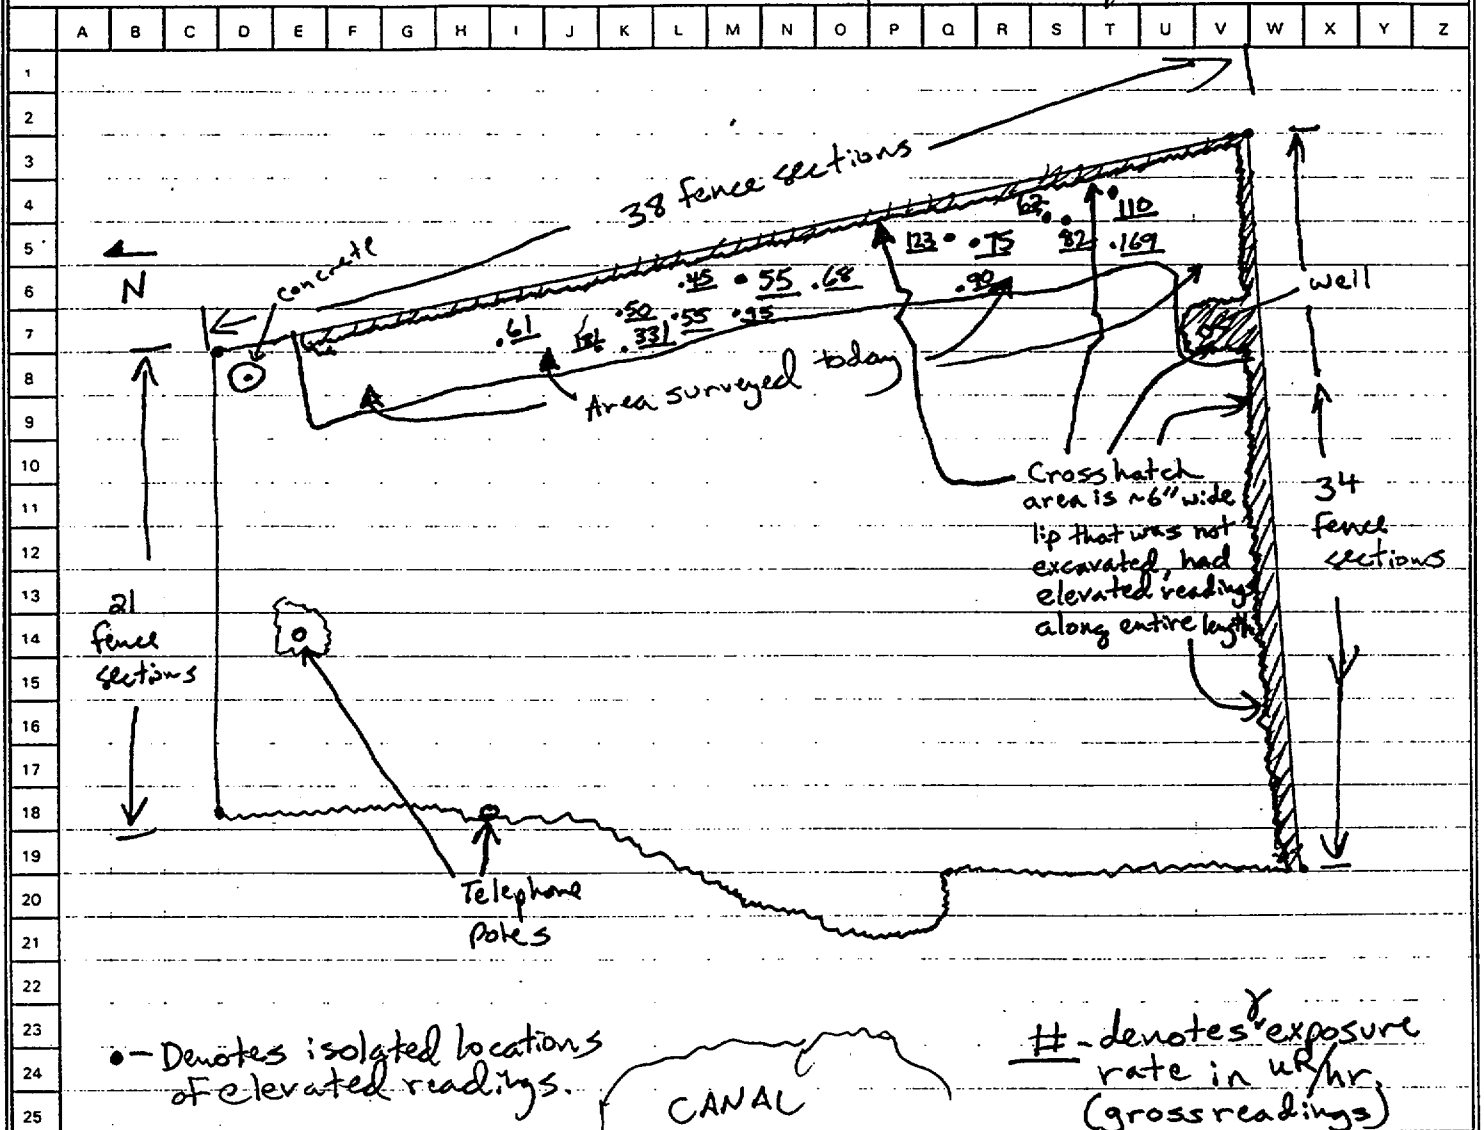 A B C D E F G H I J K L M N O P Q R S T U V W X Y Z
1
2
3
4
5
6
7
8
9
10
11
12
13
14
15
16
17
18
19
20
21
22
23
24
25
38 fence sections
N
concrete
62
110
123
75
82
169
45
55
68
90
50
55
95
61
331
well
Area surveyed today
Crosshatch
area is ~6" wide
lip that was not
excavated, had
elevated readings
along entire length
34
fence
sections
21
fence
sections
Telephone
poles
• - Denotes isolated locations
of elevated readings.
CANAL
# - denotes γ exposure
rate in uR/hr.
(gross readings)